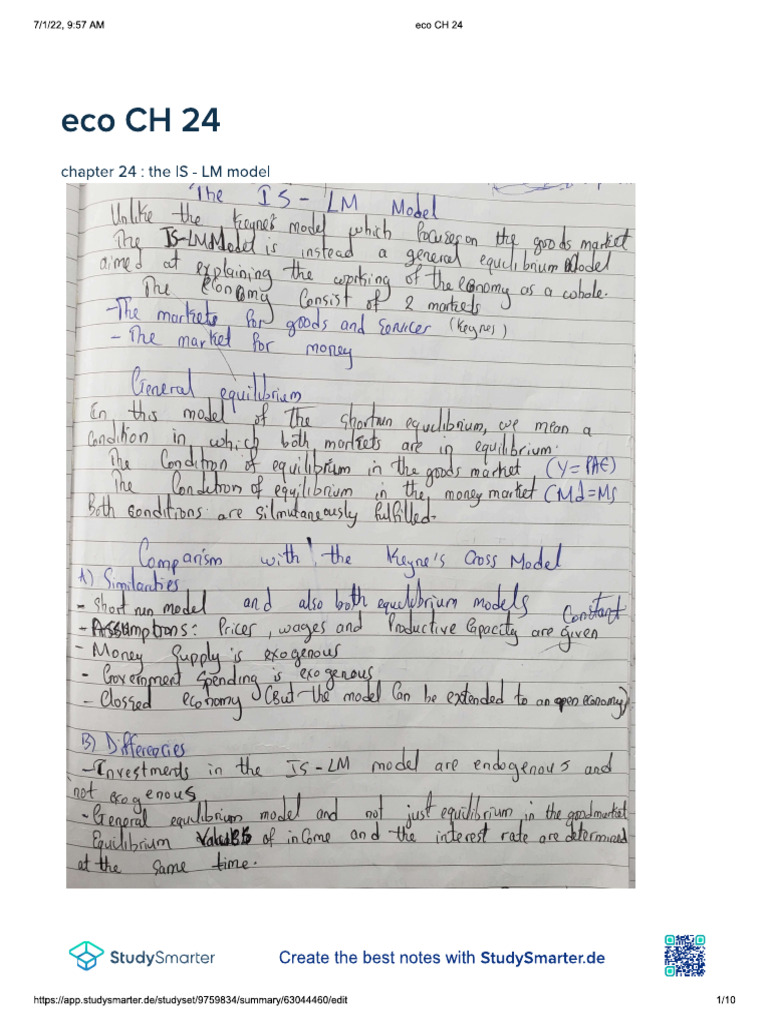 7/1/22, 9:57 AM
eco CH 24
eco CH 24
chapter 24 : the IS - LM model
The IS - LM Model
Unlike the Keyne's model which focuses on the goods market
The IS-LM Model is instead a general equilibrium Model
aimed at explaining the working of the economy as a whole.
The economy Consist of 2 markets
- The markets for goods and services (Keynes)
- The market for money
General equilibrium
In this model of the shortrun equilibrium, we mean a
Condition in which both markets are in equilibrium.
The Condition of equilibrium in the goods market (Y = PAE)
The Condition of equilibrium in the money market (Md = Ms
Both conditions are silmutaneously fulfilled.
Comparism with the Keyne's Cross Model
A) Similarities
- Short run model and also both equilibrium models
Constant
- Assumptions: Prices, wages and Productive Capacity are given
- Money Supply is exogenous
- Government Spending is exogenous
- Clossed economy (But the model Can be extended to an open economy)
B) Differences
- Investments in the IS - LM model are endogenous and
not exogenous
- General equilibrium model and not just equilibrium in the goodmarket
Equilibrium values of income and the interest rate are determined
at the same time.
StudySmarter
Create the best notes with StudySmarter.de
https://app.studysmarter.de/studyset/9759834/summary/63044460/edit
1/10